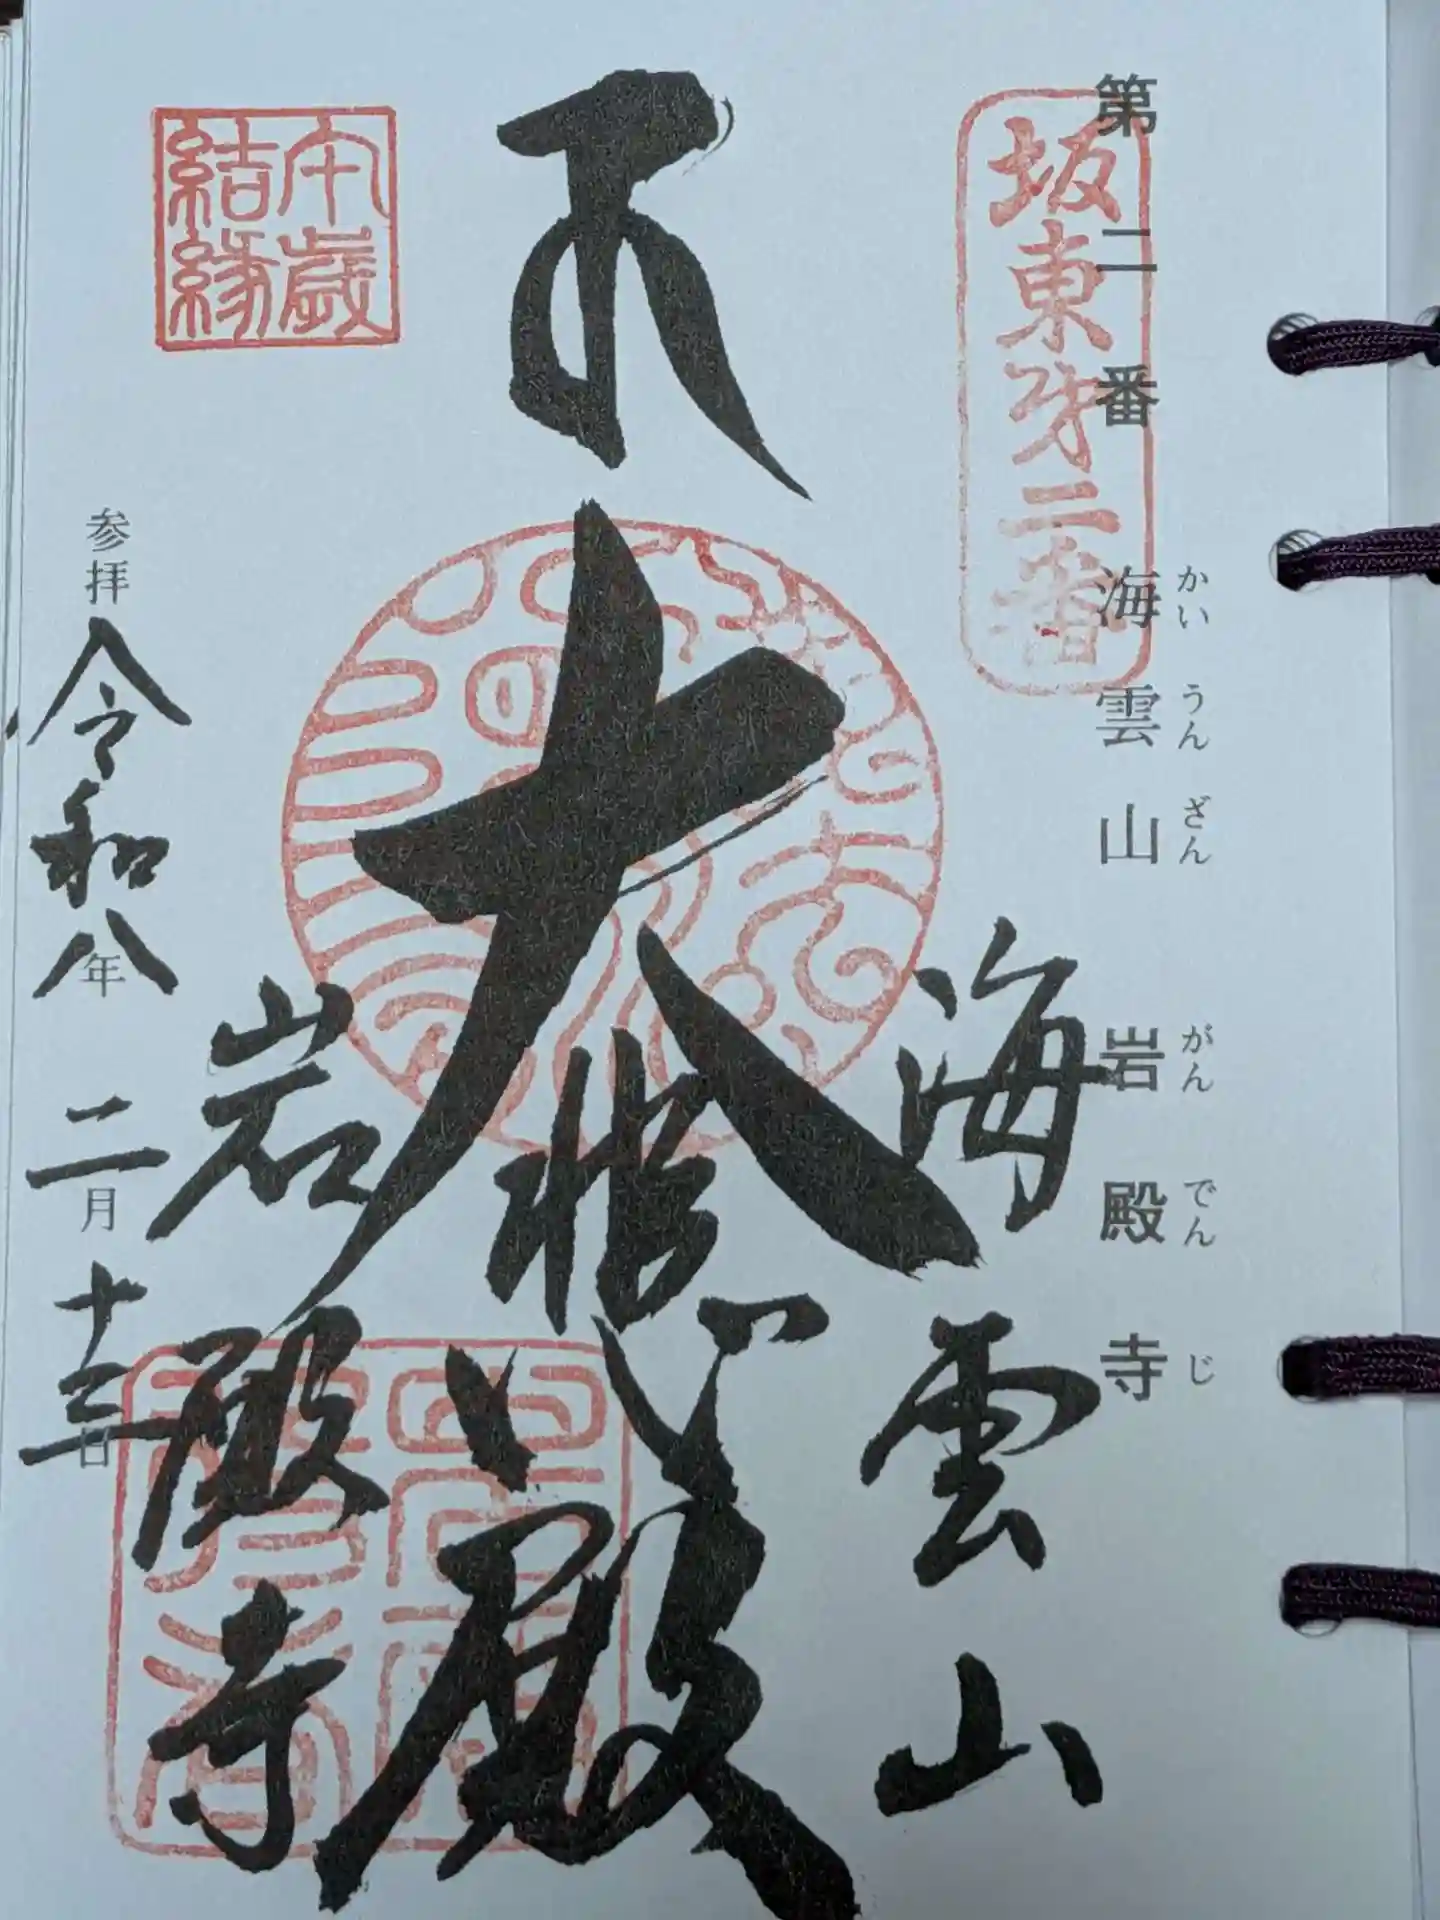 第二番 海雲山 岩殿寺
かいうんざん がんでんじ
坂東第二番
海雲山
大悲殿
岩殿寺
午歳
結縁
参拝 令和八年 二月十三日